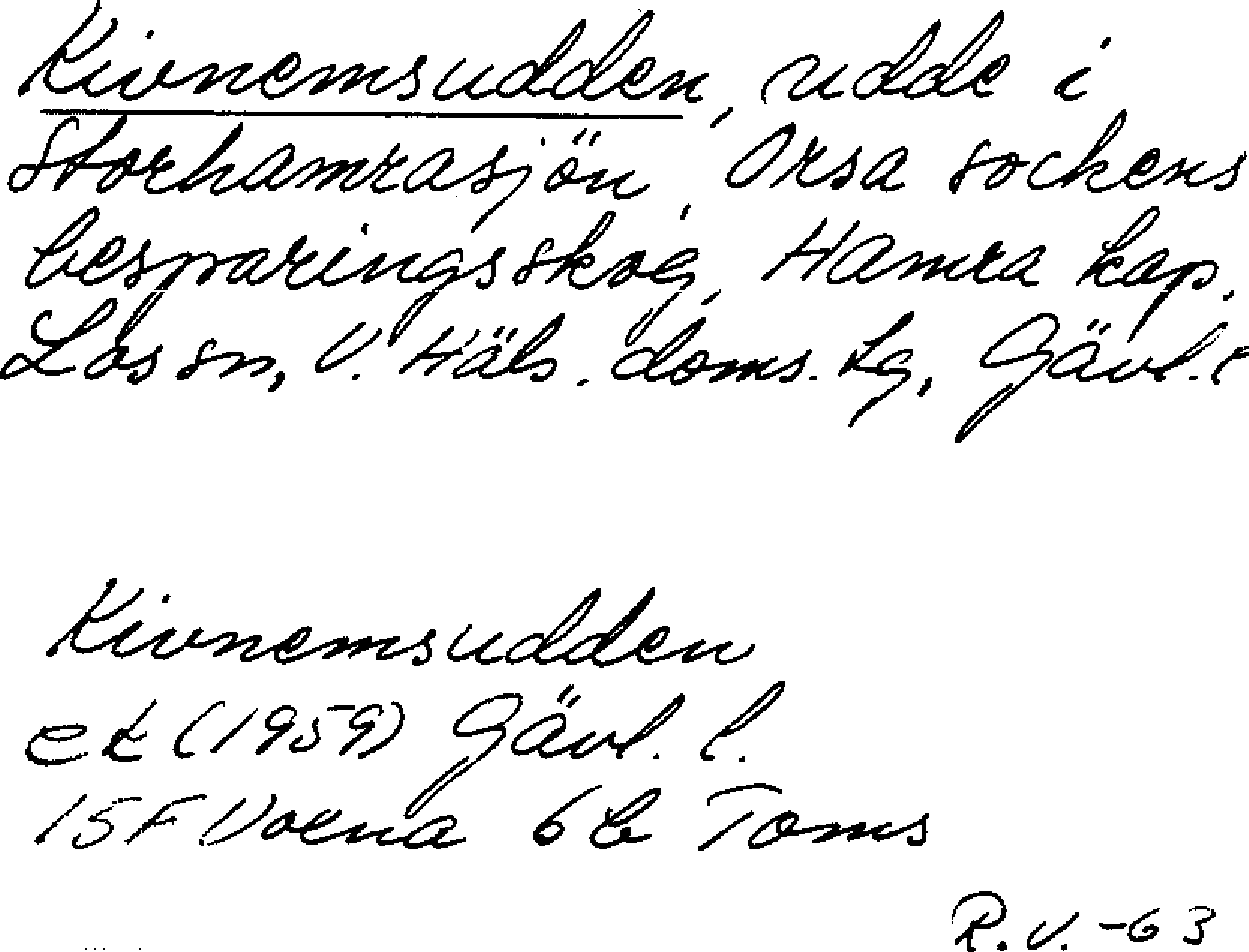 Kivnemsudden, udde i
Storhamrasjön, Orsa sockens
besparingsskog, Hamra kap.
Los sn, V. Häls. doms. tg, Gävl. l
Kivnemsudden
ek (1959) Gävl. l.
15F Voxna 6b Toms
R.V. -63